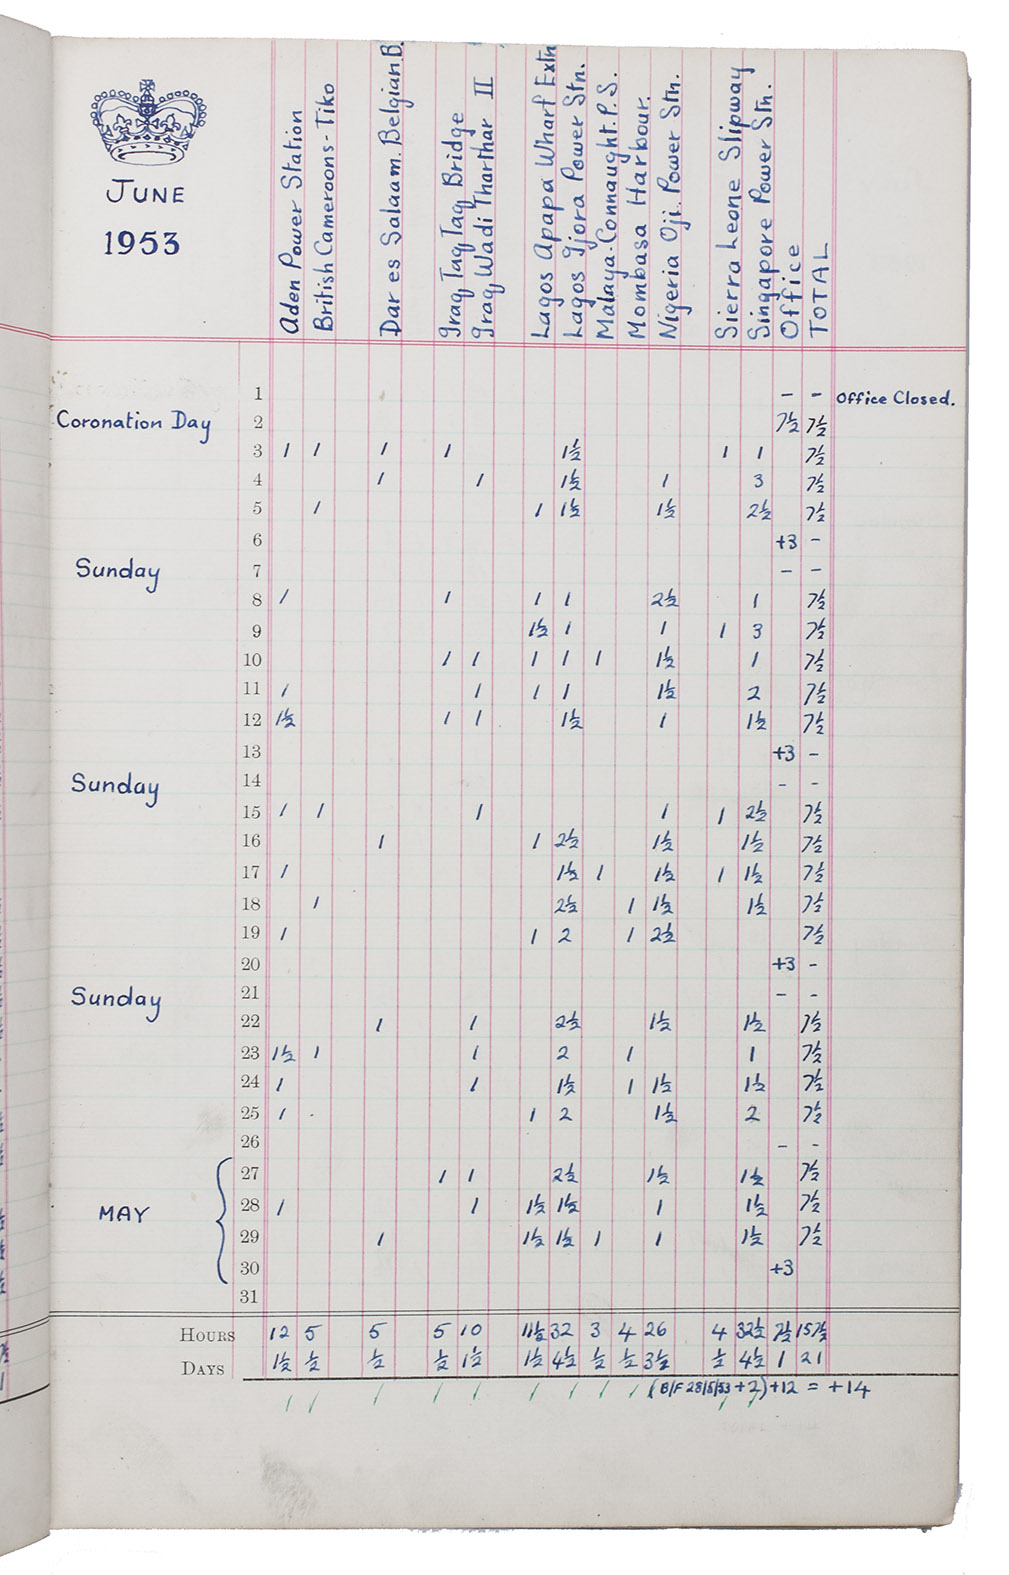 JUNE
1953
Aden Power Station
British Cameroons - Tiko
Dar es Salaam. Belgian B.
Iraq Taq Taq Bridge
Iraq Wadi Tharthar II
Lagos Apapa Wharf Extn
Lagos Ijora Power Stn.
Malaya. Connaught. P.S.
Mombasa Harbour.
Nigeria Oji. Power Stn.
Sierra Leone Slipway
Singapore Power Stn.
Office
TOTAL
1 - - Office Closed.
Coronation Day 2 7½ 7½
3 1 1 1 1 1½ 1 1 7½
4 1 1 1½ 1 3 7½
5 1 1 1½ 1½ 2½ 7½
6 +3 -
Sunday 7 - -
8 1 1 1 1 2½ 1 7½
9 1½ 1 1 1 3 7½
10 1 1 1 1 1 1½ 1 7½
11 1 1 1 1 1½ 2 7½
12 1½ 1 1 1½ 1 1½ 7½
13 +3 -
Sunday 14 - -
15 1 1 1 1 1 2½ 7½
16 1 1 2½ 1½ 1½ 7½
17 1 1½ 1 1½ 1 1½ 7½
18 1 2½ 1 1½ 1½ 7½
19 1 1 2 1 2½ 7½
20 +3 -
Sunday 21 - -
22 1 1 2½ 1½ 1½ 7½
23 1½ 1 1 2 1 1 7½
24 1 1 1½ 1 1½ 1½ 7½
25 1 1 2 1½ 2 7½
26 - -
27 1 1 2½ 1½ 1½ 7½
MAY 28 1 1 1½ 1½ 1 1½ 7½
29 1 1½ 1½ 1 1 1½ 7½
30 +3
31
HOURS 12 5 5 5 10 11½ 32 3 4 26 4 32½ 7½ 157½
DAYS 1½ ½ ½ ½ 1½ 1½ 4½ ½ ½ 3½ ½ 4½ 1 21
(B/F 28/5/53 +2) +12 = +14